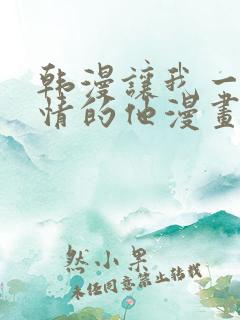 韩漫讓我一
情的他漫畫
然小果
未经同意禁止转载